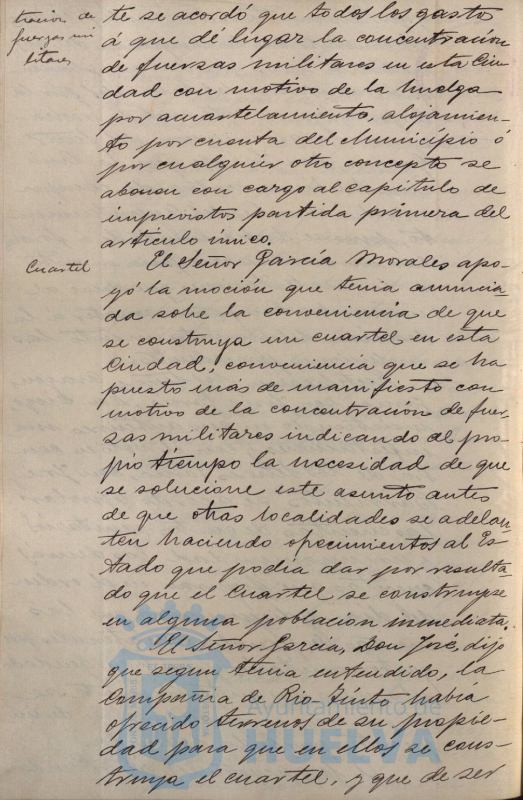 tracion de
fuerzas mi
litares
te se acordó que todos los gastos
á que dé lugar la concentración
de fuerzas militares en esta Ciu-
dad con motivo de la huelga
por acuartelamiento, alojamien-
to por cuenta del Municipio ó
por cualquier otro concepto se
abonen con cargo al capitulo de
imprevistos partida primera del
articulo único.
Cuartel
El Señor García Morales apo-
yó la moción que tenia anuncia-
da sobre la conveniencia de que
se construya un cuartel en esta
Ciudad, conveniencia que se ha
puesto más de manifiesto con
motivo de la concentración de fuer-
zas militares indicando al pro-
pio tiempo la necesidad de que
se solucione este asunto antes
de que otras localidades se adelan-
ten haciendo ofrecimientos al Es-
tado que podia dar por resulta-
do que el Cuartel se construyese
en alguna población inmediata.
El Señor García, Don José, dijo
que segun tenia entendido, la
Compañia de Rio Tinto habia
ofrecido terrenos de su propie-
dad para que en ellos se cons-
truya el cuartel, y que de ser
Ayuntamiento de
HUELVA